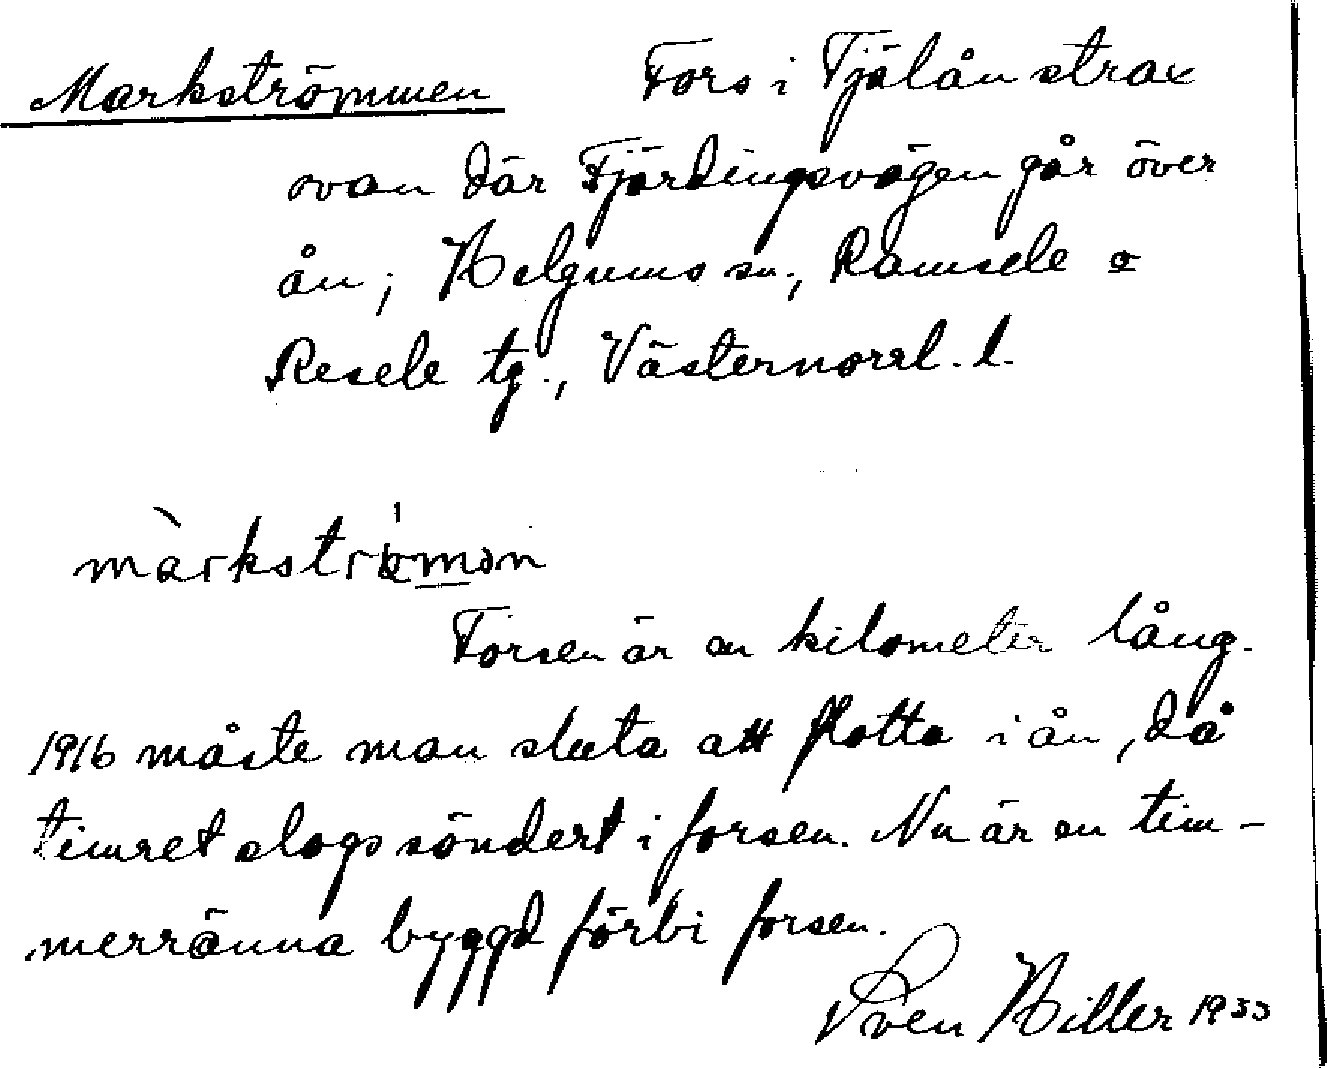 Markströmmen Fors i Tjälån strax
ovan där Fjärdingsvägen går över
ån; Helgums sn., Ramsele o
Resele tg., Västernorrl. l.
màrkströmən
Forsen är en kilometer lång.
1916 måste man sluta att flotta i ån, då
timret slogs söndert i forsen. Nu är en tim-
merränna byggd förbi forsen.
Sven Hiller 1933